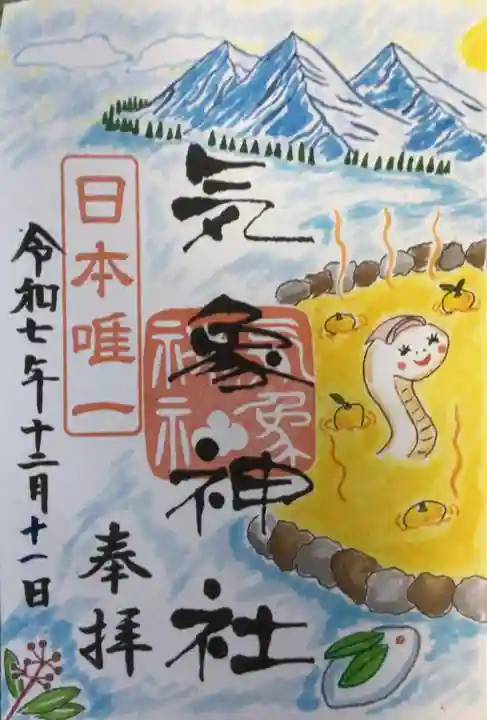 気象神社
気象
神社
日本唯一
奉拝
令和七年十二月十一日